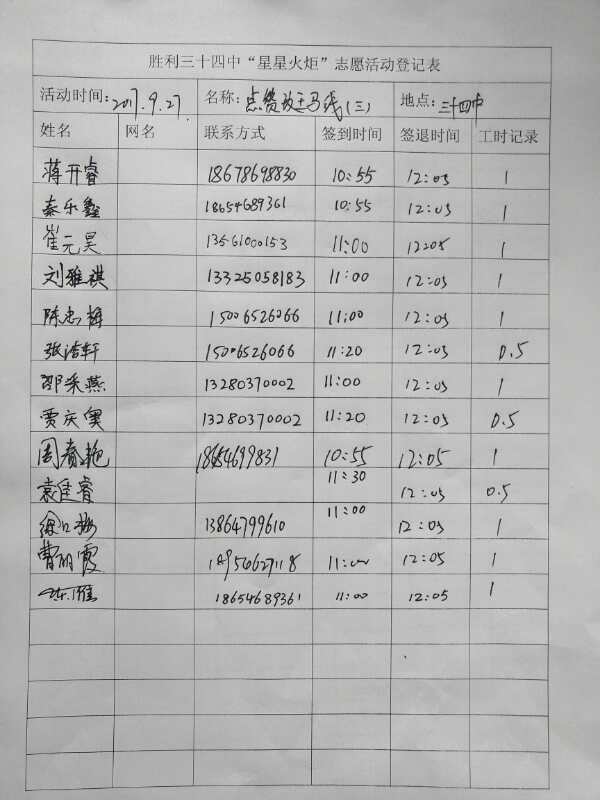 胜利三十四中“星星火炬”志愿活动登记表
活动时间：2017.9.27. 名称：点赞 (三) 地点：三十四中
姓名 网名 联系方式 签到时间 签退时间 工时记录
蒋开睿 18678698830 10:55 12:05 1
秦乐鑫 18654689361 10:55 12:05 1
崔元昊 13561000153 11:00 12:05 1
刘雅祺 13325058183 11:00 12:05 1
陈忠梅 15006526066 11:00 12:05 1
张洁轩 15006526066 11:20 12:05 0.5
邵采燕 13280370002 11:00 12:05 1
贾庆 13280370002 11:20 12:05 0.5
周春艳 18654699831 10:55 12:05 1
袁佳睿 11:30 12:05 0.5
13864799610 11:00 12:05 1
曹丽霞 11:00 12:05 1
18654689361 11:00 12:05 1